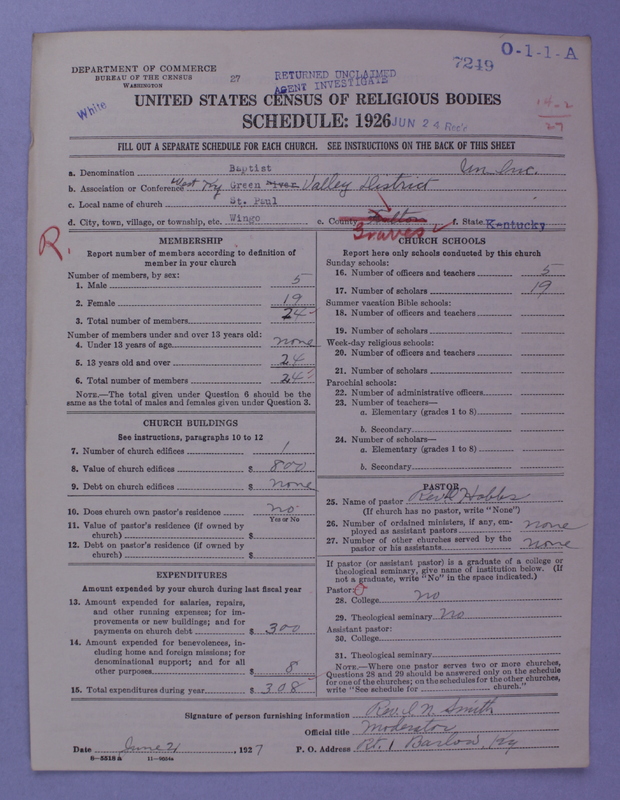 DEPARTMENT OF COMMERCE
BUREAU OF THE CENSUS
WASHINGTON
27
RETURNED UNCLAIMED
AGENT INVESTIGATE
7249
O-1-1-A
White
UNITED STATES CENSUS OF RELIGIOUS BODIES
14-2
27
SCHEDULE: 1926
JUN 24 Rec'd
FILL OUT A SEPARATE SCHEDULE FOR EACH CHURCH. SEE INSTRUCTIONS ON THE BACK OF THIS SHEET
a. Denomination Baptist Un. Inc.
b. Association or Conference West Ky Green River Valley District
c. Local name of church St. Paul
d. City, town, village, or township, etc. Wingo e. County Fulton f. State Kentucky
Graves
R.
MEMBERSHIP
Report number of members according to definition of
member in your church
Number of members, by sex:
1. Male 5
2. Female 19
3. Total number of members 24
Number of members under and over 13 years old:
4. Under 13 years of age none
5. 13 years old and over 24
6. Total number of members 24
NOTE.—The total given under Question 6 should be the
same as the total of males and females given under Question 3.
CHURCH BUILDINGS
See instructions, paragraphs 10 to 12
7. Number of church edifices 1
8. Value of church edifices $ 800
9. Debt on church edifices $ none
10. Does church own pastor's residence no
Yes or No
11. Value of pastor's residence (if owned by
church) $
12. Debt on pastor's residence (if owned by
church) $
EXPENDITURES
Amount expended by your church during last fiscal year
13. Amount expended for salaries, repairs,
and other running expenses; for im-
provements or new buildings; and for
payments on church debt $ 300
14. Amount expended for benevolences, in-
cluding home and foreign missions; for
denominational support; and for all
other purposes $ 8
15. Total expenditures during year $ 308
CHURCH SCHOOLS
Report here only schools conducted by this church
Sunday schools:
16. Number of officers and teachers 5
17. Number of scholars 19
Summer vacation Bible schools:
18. Number of officers and teachers
19. Number of scholars
Week-day religious schools:
20. Number of officers and teachers
21. Number of scholars
Parochial schools:
22. Number of administrative officers
23. Number of teachers—
a. Elementary (grades 1 to 8)
b. Secondary
24. Number of scholars—
a. Elementary (grades 1 to 8)
b. Secondary
PASTOR
25. Name of pastor Rev. Hobbs
(If church has no pastor, write "None")
26. Number of ordained ministers, if any, em-
ployed as assistant pastors none
27. Number of other churches served by the
pastor or his assistants none
If pastor (or assistant pastor) is a graduate of a college or
theological seminary, give name of institution below. (If
not a graduate, write "No" in the space indicated.)
Pastor: O
28. College no
29. Theological seminary No
Assistant pastor:
30. College
31. Theological seminary
NOTE.—Where one pastor serves two or more churches,
Questions 28 and 29 should be answered only on the schedule
for one of the churches; on the schedules for the other churches,
write "See schedule for church."
Signature of person furnishing information Rev. I. N. Smith
Official title Moderator
Date June 21, 1927 P. O. Address Rt. 1 Barlow, Ky
8—5518a 11—9054a